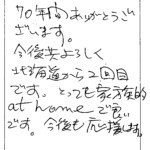 70年間ありがとうご
ざいます。
今後共よろしく
北海道から2回目
です。とっても家族的
at homeで良い
です。今後も応援します。